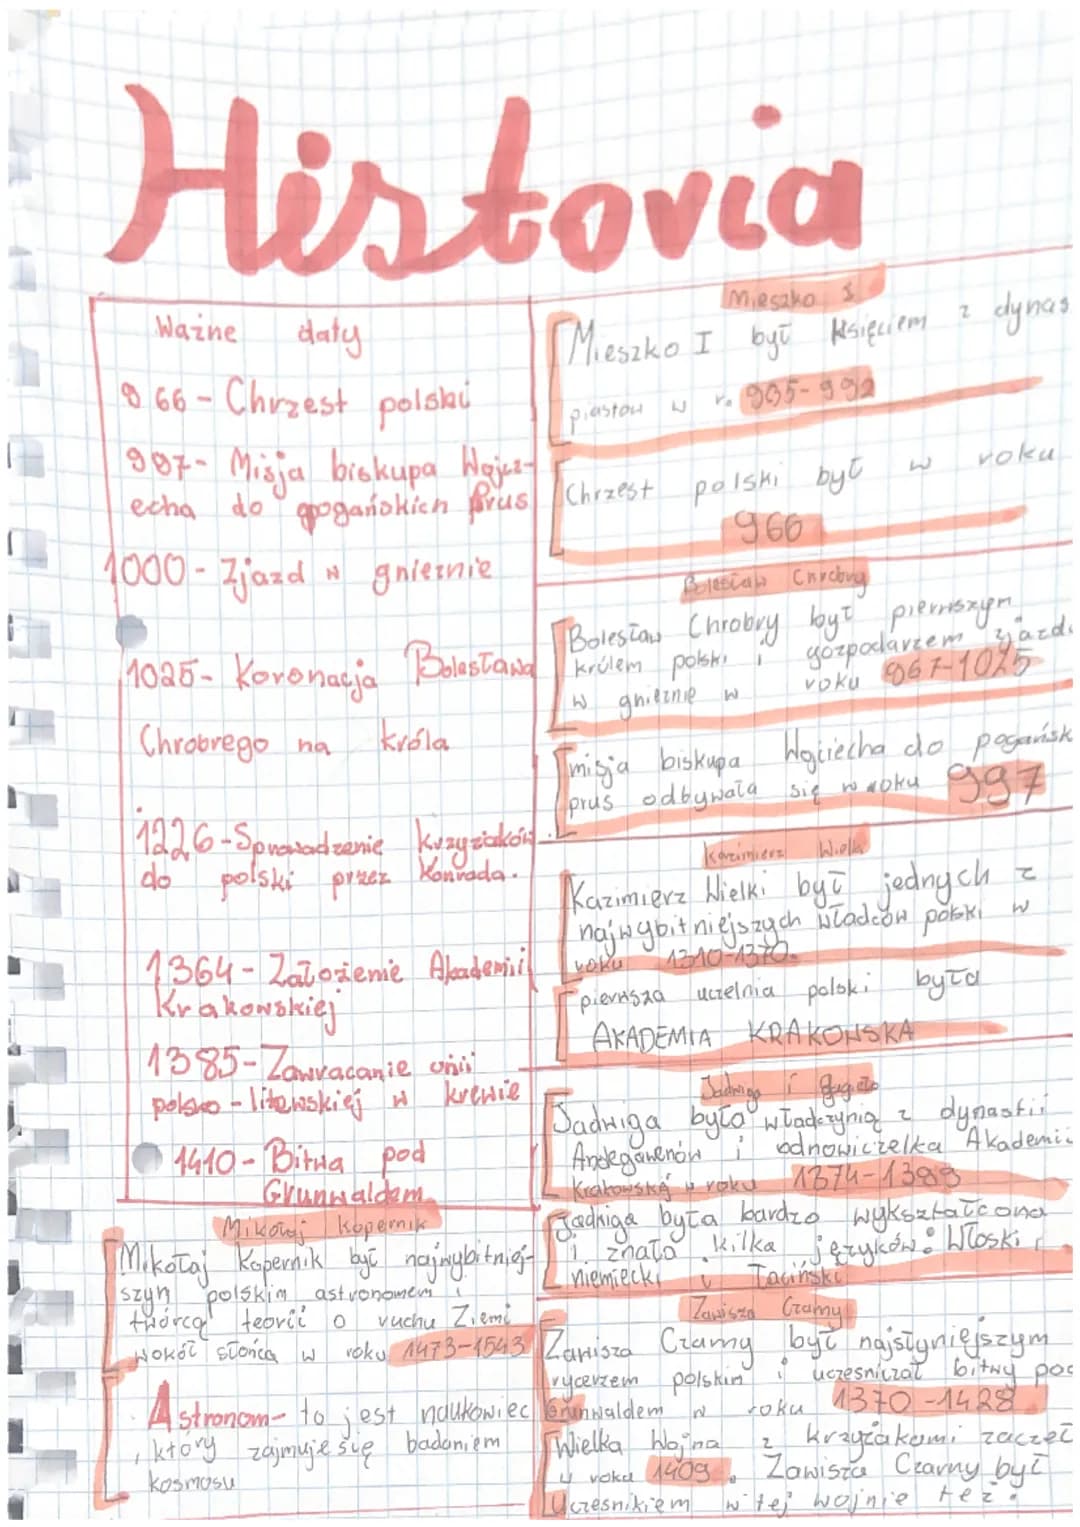 Historia
Ważne daty
966 - Chrzest polski
997 - Misja biskupa Wojci-
echa do pogańskich Prus
1000 - Zjazd w gnieźnie
1025 - Koronacja Bolesława
Chrobrego na króla
1226 - Sprowadzenie krzyżaków
do polski przez Konrada.
1364 - Założenie Akademii
Krakowskiej
1385 - Zawracanie unii
polsko - litewskiej w krewie
1410 - Bitwa pod
Grunwaldem
Mikołaj Kopernik
Mikołaj Kopernik był najwybitniej-
szym polskim astronomem i
twórcą teorii o ruchu Ziemi
wokół słońca w roku 1473-1543
Astronom - to jest naukowiec
, który zajmuje się badaniem
kosmosu
Mieszko I
Mieszko I był księciem z dynas
piastów w r. 935-992
Chrzest polski był w roku
966
Bolesław Chrobry
Bolesław Chrobry był pierwszym
królem polski i gozpodarzem zjazdu
w gnieźnie w roku 967-1025
misja biskupa Wojciecha do pogańsk
prus odbywała się w roku 997
Kazimierz Wielki
Kazimierz Wielki był jednych z
najwybitniejszych władców polski w
roku 1310-1370.
pierwsza uczelnia polski była
AKADEMIA KRAKOWSKA
Jadwiga i Jagiełło
Jadwiga była władczynią z dynastii
Andegawenów i odnowiczelka Akademii
Krakowską w roku 1374-1399
Jadwiga była bardzo wykształcona
i znała kilka języków: Włoski,
niemiecki i Łaciński
Zawisza Czarny
Zawisza Czarny był najsłyniejszym
rycerzem polskim i uczesniczał bitwy pod
Grunwaldem w roku 1370-1428
Wielka Wojna z krzyżakami zaczęł
w roku 1409. Zawisza Czarny był
Uczesnikiem w tej wojnie też.